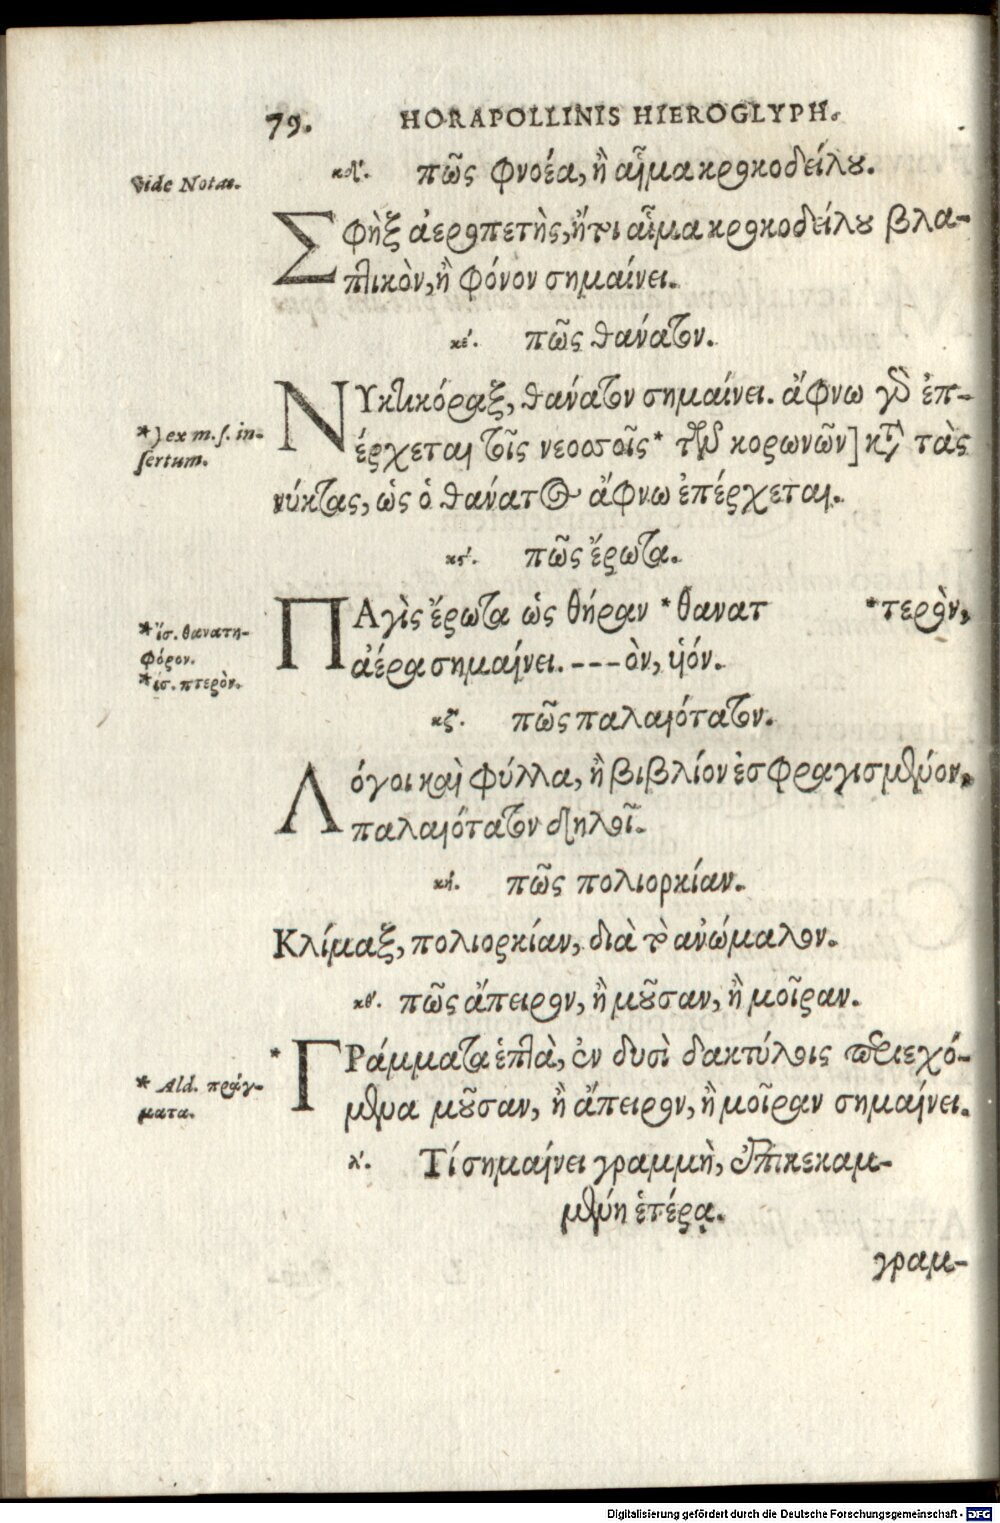 79. HORAPOLLINIS HIEROGLYPH.
Vide Notas.
κδʹ. πῶς φνοέα, ἢ αἷμα κροκοδείλου.
Σφὴξ ἀεροπετὴς, ἤτι αἷμα κροκοδείλου βλα-
πτικὸν, ἢ φόνον σημαίνει.
κεʹ. πῶς θάνατον.
ΝΥκτικόραξ, θάνατον σημαίνει. ἄφνω γὰρ ἐπ-
έρχεται τοῖς νεοσσοῖς* τῶν κορωνῶν] κατὰ τὰς
νύκτας, ὡς ὁ θάνατος ἄφνω ἐπέρχεται.
*) ex m.s. in-
sertum.
κςʹ. πῶς ἔρωτα.
ΠΑγὶς ἔρωτα ὡς θήραν *θανατ *τερὸν,
ἀέρα σημαίνει. ---ὸν, υἱόν.
*ἴσ. θανατη-
φόρον.
*ἴσ. πτερὸν.
κζʹ. πῶς παλαιότατον.
Λόγοι καὶ φύλλα, ἢ βιβλίον ἐσφραγισμένον,
παλαιότατον δηλοῖ.
κηʹ. πῶς πολιορκίαν.
Κλίμαξ, πολιορκίαν, διὰ τὸ ἀνώμαλον.
κθʹ. πῶς ἄπειρον, ἢ μοῦσαν, ἢ μοῖραν.
*ΓΡάμματα ἑπτὰ, ἐν δυσὶ δακτύλοις περιεχό-
μενα μοῦσαν, ἢ ἄπειρον, ἢ μοῖραν σημαίνει.
* Ald. πράγ-
ματα.
λʹ. Τί σημαίνει γραμμὴ, ἐπικεκαμ-
μένη ἑτέρᾳ.
γραμ-
Digitalisierung gefördert durch die Deutsche Forschungsgemeinschaft - DFG